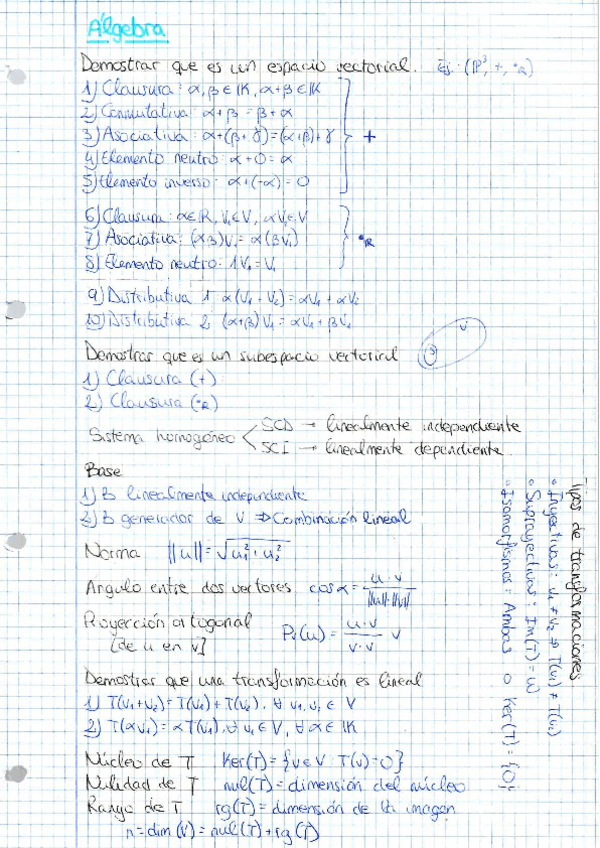 Álgebra
Demostrar que es un espacio vectorial. Ej: (P³, +, ·R)
1) Clausura: α, β ∈ K, α+β ∈ K
2) Conmutativa: α+β = β+α
3) Asociativa: α+(β+γ)=(α+β)+γ
+
4) Elemento neutro: α+0=α
5) Elemento inverso: α+(-α)=0
6) Clausura: α∈R, V₁∈V, αV₁∈V
7) Asociativa: (αβ)V₁=α(βV₁)
·R
8) Elemento neutro: 1V₁=V₁
9) Distributiva 1: α(V₁+V₂)=αV₁+αV₂
10) Distributiva 2: (α+β)V₁=αV₁+βV₁
Demostrar que es un subespacio vectorial
V
S
1) Clausura (+)
2) Clausura (·R)
Sistema homogéneo < SCD → linealmente independiente
SCI → linealmente dependiente
Base
1) B linealmente independiente
2) B generador de V ⇒ Combinación lineal
Norma ||u||=√u₁²+u₂²
Angulo entre dos vectores cosα = u·v / ||u||·||v||
Proyección ortogonal Pᵥ(u) = u·v / v·v v
[de u en v]
Demostrar que una transformación es lineal
1) T(v₁+v₂)=T(v₁)+T(v₂), ∀ v₁,v₂ ∈ V
2) T(αv₁)=αT(v₁), ∀ v₁∈V, ∀ α∈K
Núcleo de T Ker(T)={v∈V: T(v)=0}
Nulidad de T nul(T)=dimensión del núcleo
Rango de T rg(T)=dimensión de la imagen
n=dim(V)=nul(T)+rg(T)
Tipos de transformaciones
• Inyectivas: v₁≠v₂ ⇒ T(v₁)≠T(v₂)
• Suprayectivas: Im(T)=W
• Isomorfismos: Ambas o Ker(T)={0}